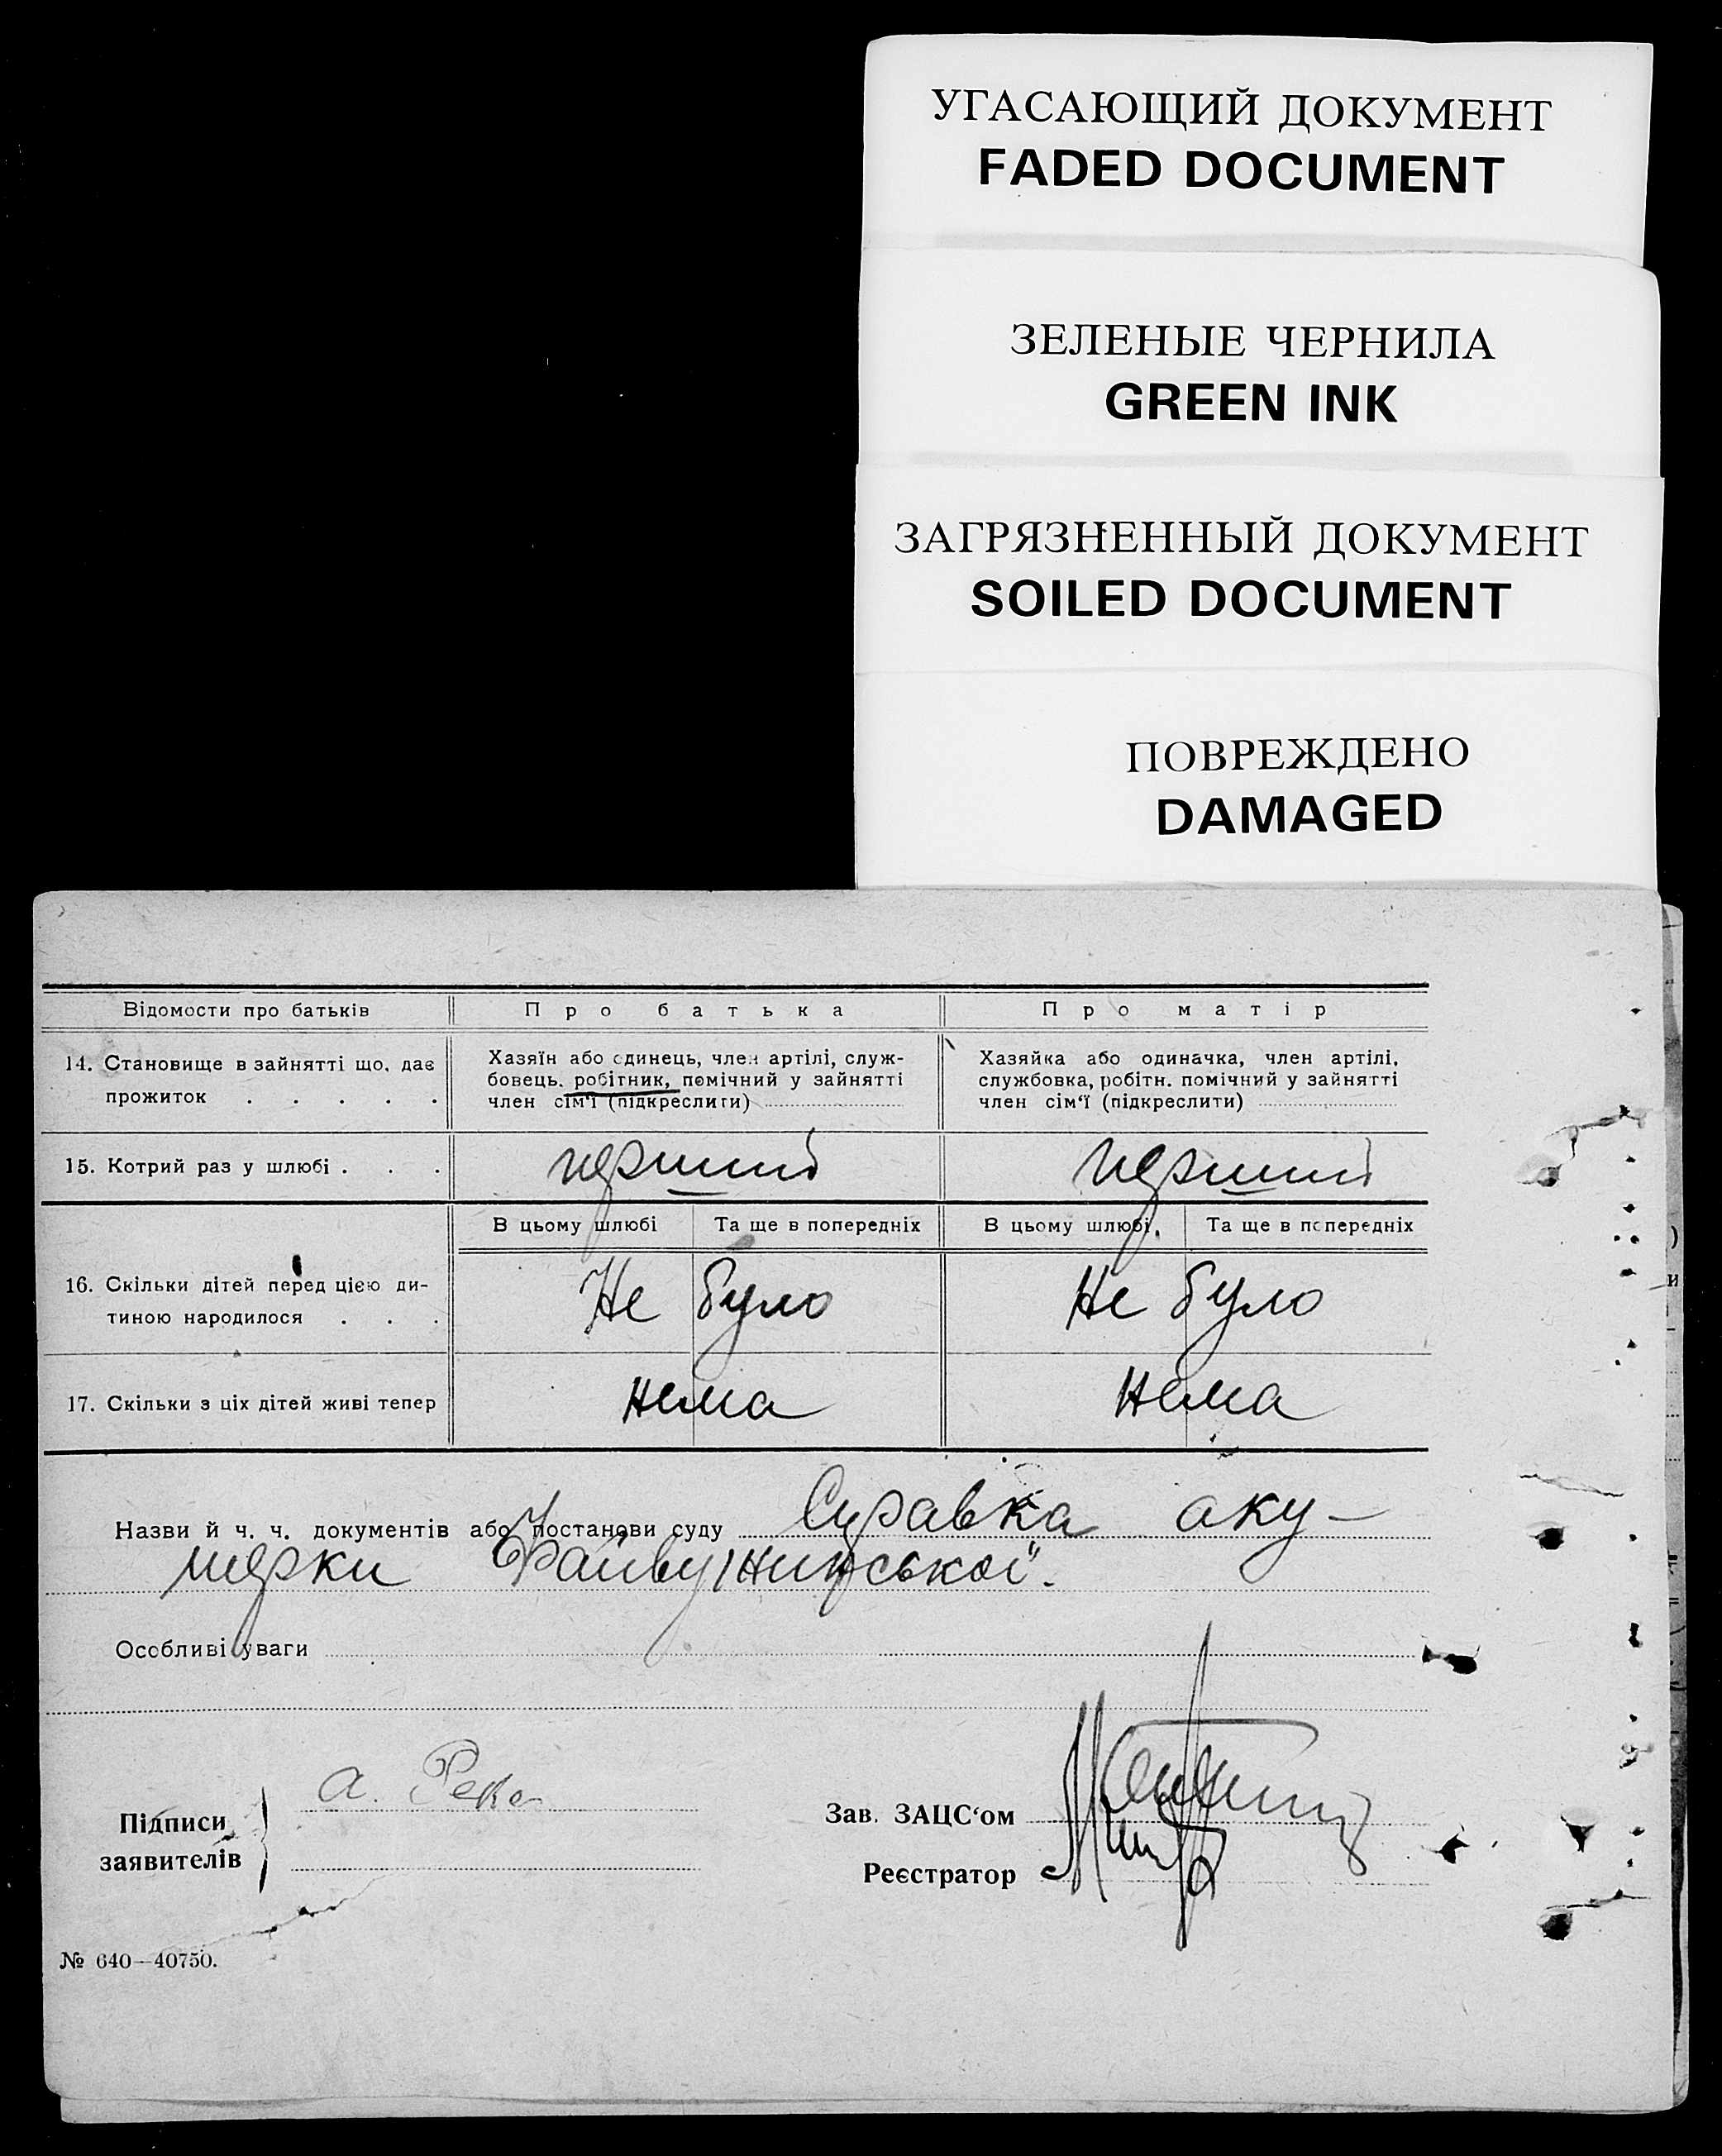 УГАСАЮЩИЙ ДОКУМЕНТ
FADED DOCUMENT
ЗЕЛЕНЫЕ ЧЕРНИЛА
GREEN INK
ЗАГРЯЗНЕННЫЙ ДОКУМЕНТ
SOILED DOCUMENT
ПОВРЕЖДЕНО
DAMAGED
Відомости про батьків Про батька Про матір
14. Становище в зайнятті що, дає прожиток . . . . .
Хазяїн або одинець, член артілі, служ-
бовець, робітник, помічний у зайнятті
член сім'ї (підкреслити)
Хазяйка або одиначка, член артілі,
службовка, робітн. помічний у зайнятті
член сім'ї (підкреслити)
15. Котрий раз у шлюбі . . . перший перший
В цьому шлюбі Та ще в попередніх В цьому шлюбі, Та ще в попередніх
16. Скільки дітей перед цією ди-
тиною народилося . . .
Не було Не було
17. Скільки з ціх дітей живі тепер нема нема
Назви й ч. ч. документів або постанови суду Справка аку-
шерки
Особливі уваги
Підписи
заявителів
а. Река
Зав. ЗАЦС'ом
Реєстратор
№ 640—40750.